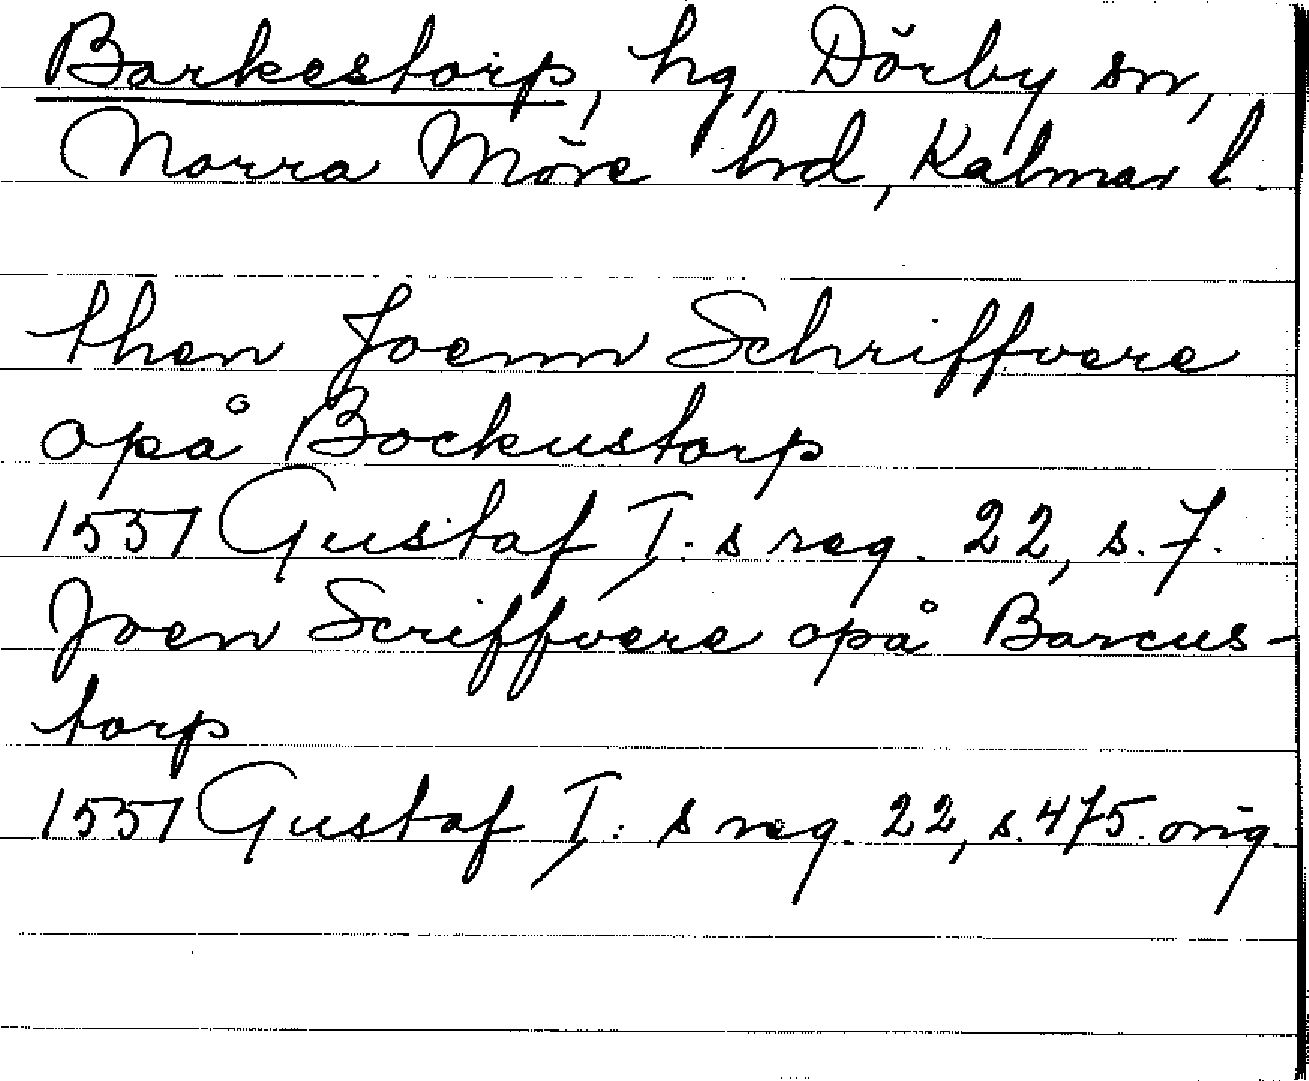 Barkestorp, hg, Dörby sn,
Norra Möre hd, Kalmar l.
then Joenn Schriffvere
opå Bockustorp
1551 Gustaf I:s reg. 22, s. 7.
Joen Scriffvere opå Barcus-
torp
1551 Gustaf I:s reg. 22, s. 475. orig.